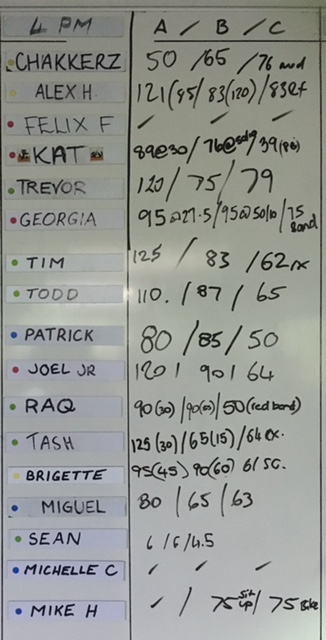 4 PM A / B / C
CHAKKERZ 50 / 65 / 76 mod
ALEX H 121(85) / 83(120) / 83
FELIX F / / /
KAT 89@30 / 76@ / 39
TREVOR 120 / 75 / 79
GEORGIA 95@27.5 / 95@50/10 / 75
Band
TIM 125 / 83 / 62 rx
TODD 110. / 87 / 65
PATRICK 80 / 85 / 50
JOEL JR 120 / 90 / 64
RAQ 90(30) / 90(60) / 50 (red band)
TASH 125 (30) / 65(15) / 64 rx.
BRIGETTE 95(45) 90(60) 61 SC.
MIGUEL 80 / 65 / 63
SEAN 6 / 6 / 4.5
MICHELLE C / / /
MIKE H / / 75 Sit up / 75 Bike